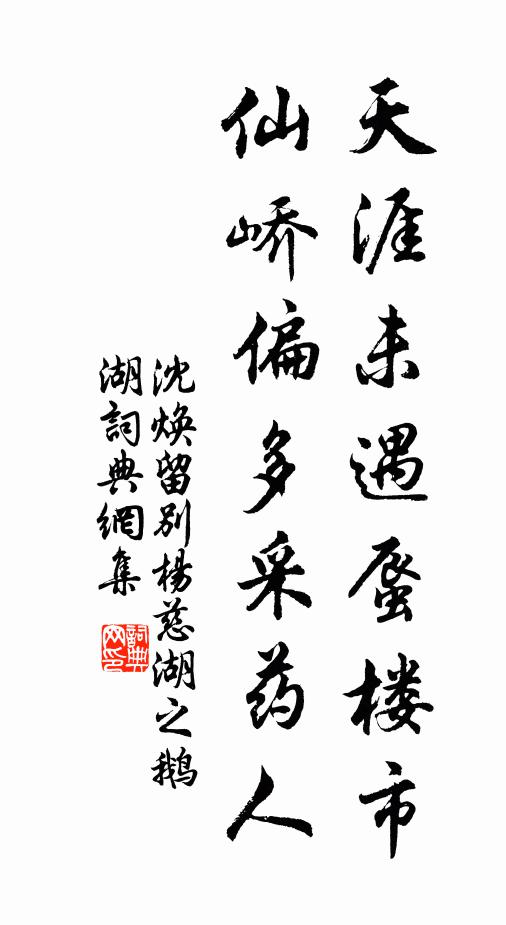 天涯未遇蜃楼市
仙峤偏多采药人
沈焕留别楊慈湖之鵝
湖詞典網集
詞典
网印